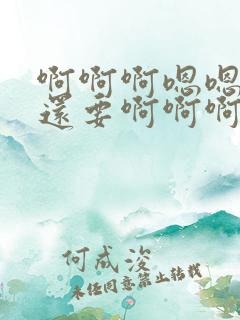 啊啊啊嗯嗯
還要啊啊啊
何成浚
未经同意禁止转载